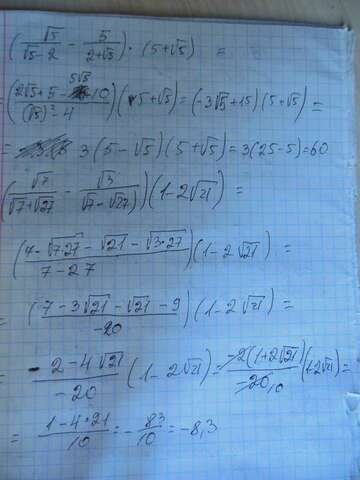 (√5/(√5-2) - 5/(2+√5)) · (5+√5) =
= ((2√5+5-5√5+10)/((√5)²-4))(5+√5) = (-3√5+15)(5+√5) =
= 3(5-√5)(5+√5) = 3(25-5) = 60
(√7/(√7+√27) - √3/(√7-√27))(1-2√21) =
((7-√7·27-√21-√3·27)/(7-27))(1-2√21) =
= ((7-3√21-√21-9)/-20)(1-2√21) =
= (-2-4√21)/-20 (1-2√21) = -2(1+2√21)/-20 10 (1-2√21) =
= (1-4·21)/10 = -83/10 = -8,3